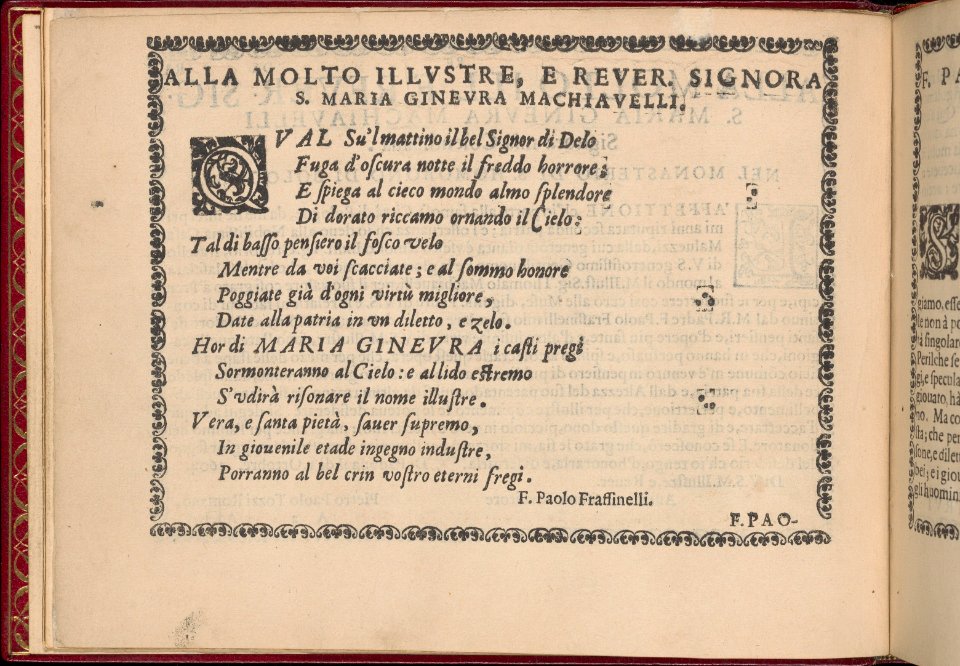 ALLA MOLTO ILLVSTRE, E REVER. SIGNORA
S. MARIA GINEVRA MACHIAVELLI.
QVAL Su'l mattino il bel Signor di Delo
Fuga d'oscura notte il freddo horrore;
E spiega al cieco mondo almo splendore
Di dorato riccamo ornando il Cielo;
Tal di basso pensiero il fosco velo
Mentre da voi scacciate; e al sommo honore
Poggiate già d'ogni virtù migliore,
Date alla patria in vn diletto, e zelo.
Hor di MARIA GINEVRA i casti pregi
Sormonteranno al Cielo: e al lido estremo
S'vdirà risonare il nome illustre.
Vera, e santa pietà, sauer supremo,
In giouenile etade ingegno industre,
Porranno al bel crin vostro eterni fregi.
F. Paolo Frassinelli.
F. PAO-
F. PA
giamo, esse
che non à po
à singolare
Perilche se
gi, e specula
giouato, hà
no. Ma co
sta; che per
sone, e dilet
bei; e i giou
gli huomini